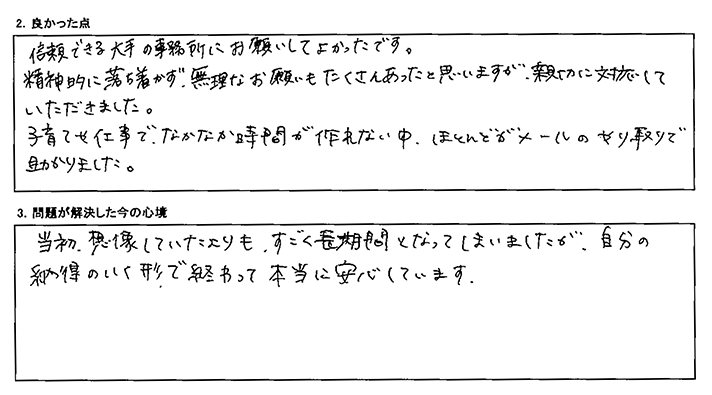 2. 良かった点
信頼できる大手の事務所にお願いしてよかったです。
精神的に落ち着かず、無理なお願いもたくさんあったと思いますが、親切に対応して
いただきました。
子育てや仕事で、なかなか時間が作れない中、ほとんどがメールのやり取りで
助かりました。
3. 問題が解決した今の心境
当初、想像していたよりも、すごく長期間となってしまいましたが、自分の
納得のいく形で終わって本当に安心しています.